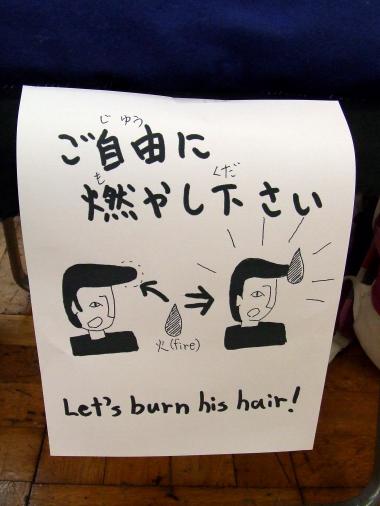 じゆう
ご自由に
も くだ
燃やし下さい
火(fire)
Let's burn his hair!